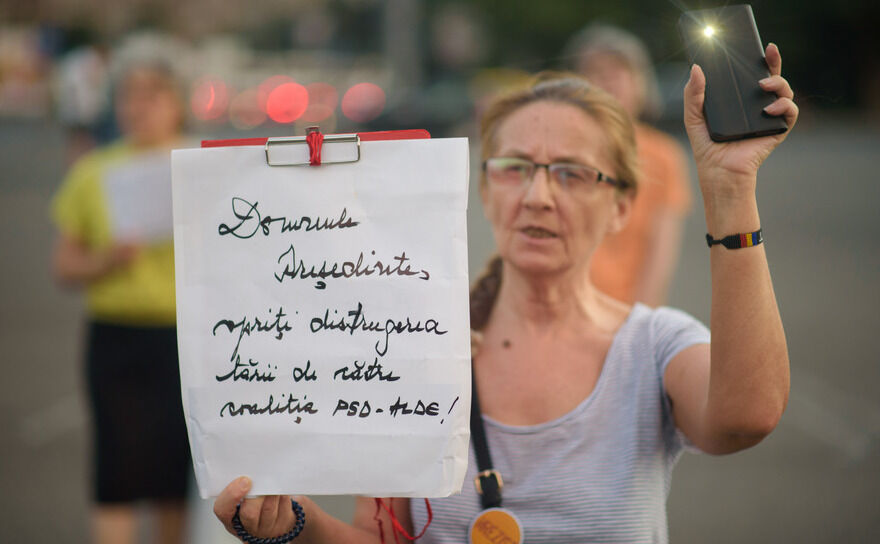 Domnule
Președinte,
opriți distrugerea
țării de către
coaliția PSD-ALDE!